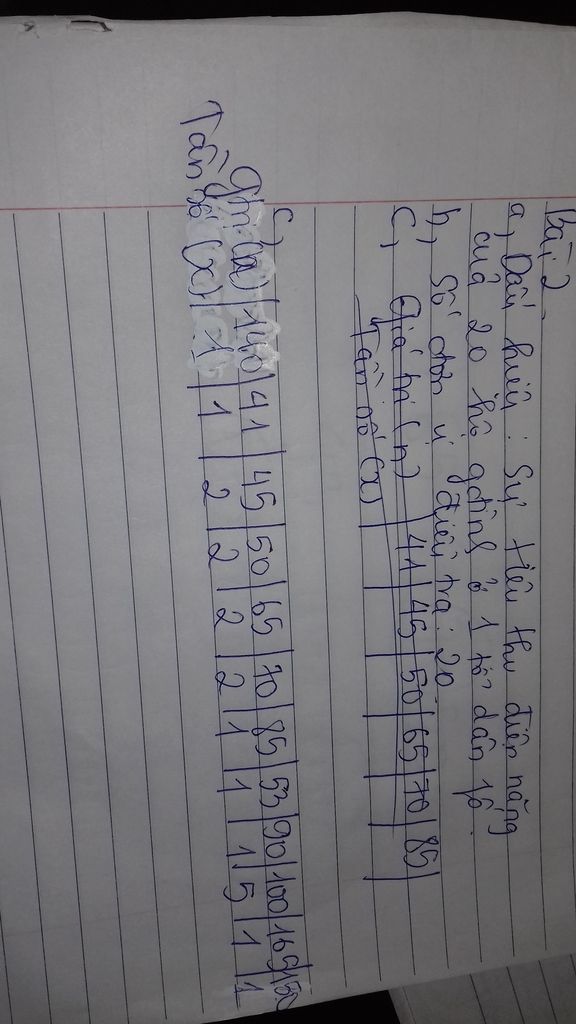 Bài 2
a, Dấu hiệu: Sự tiêu thụ điện năng
của 20 hộ gđình ở 1 tổ dân số.
b, Số đơn vị điều tra: 20
c, Giá trị (n) | 41 | 45 | 50 | 65 | 70 | 85
Tần số (x)
c,
gtrị (n) | 140 | 41 | 45 | 50 | 65 | 70 | 85 | 53 | 90 | 100 | 165 | 150
Tần số (x) | 1 | 1 | 2 | 2 | 2 | 2 | 1 | 1 | 1 | 5 | 1 | 1